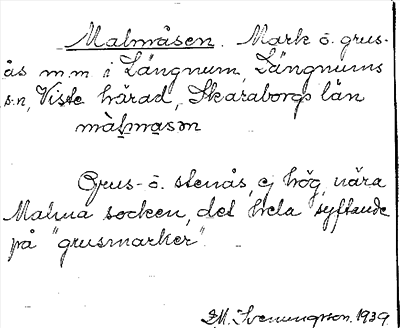 Malmåsen. Mark o. grus-
ås m.m i Längnum, Längnums
s:n, Viste härad, Skaraborgs län
màl̥mạsən
Grus- o. stenås, ej hög, nära
Malma socken, det hela syftande
på "grusmarker".
Svenungsson. 1939